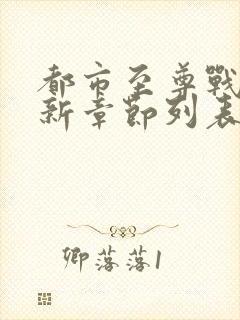 都市至尊戰
新章節列表
卿落落1